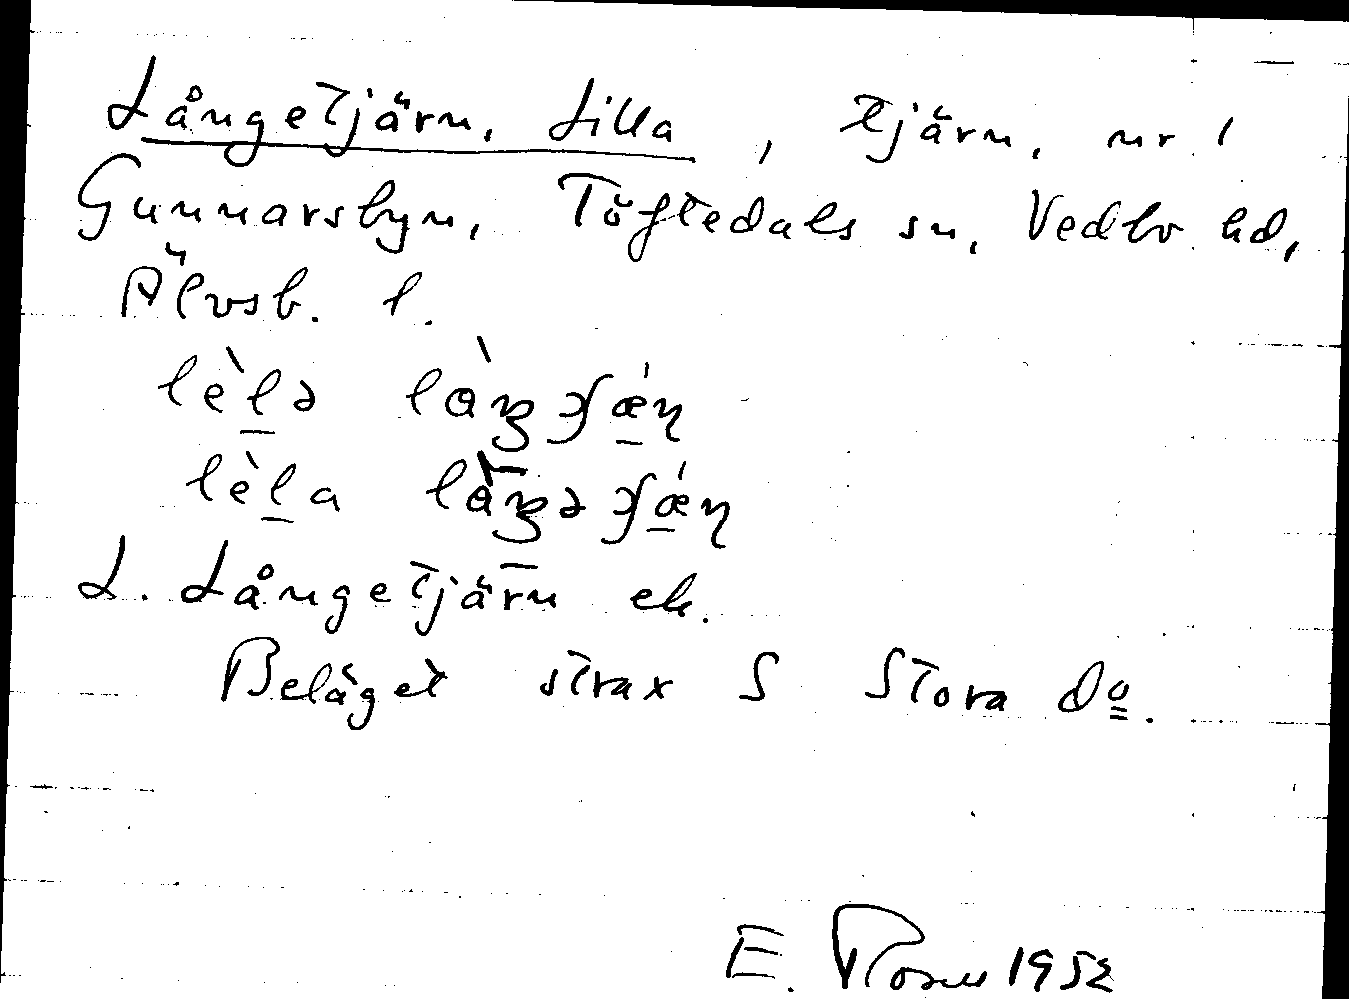 Långetjärn, Lilla, tjärn, nr 1
Gunnarsbyn, Töftedals sn, Vedbo hd,
Älvsb. l.
lèlə
lèla
L. Långetjärn ek.
Beläget strax S Stora dº.
E. 1952